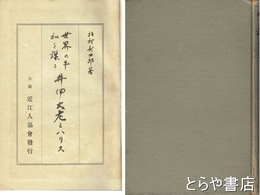 北村寿四郎著
世界の平
和を護る 井伊大老とハリス
大阪 近江人協會發行
とらや書店